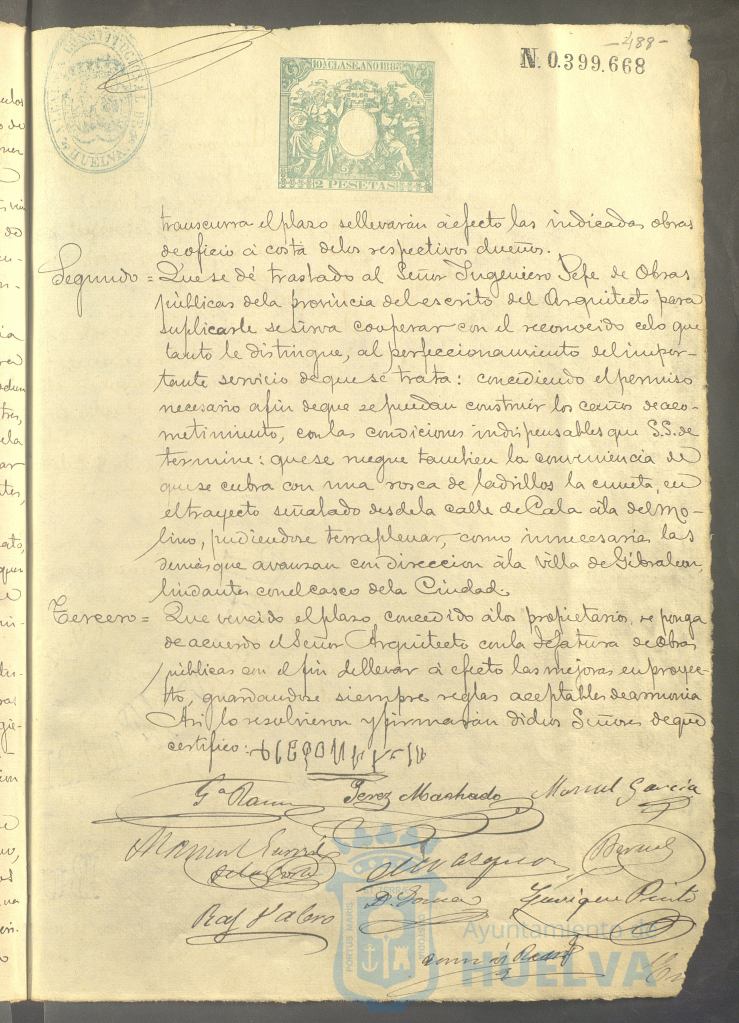 -488-
N. 0.399.668
HUELVA
10ª CLASE. AÑO 1888
2 PESETAS
transcurra el plazo se llevarán á efecto las indicadas obras
de oficio á costa de los respectivos dueños.
Segundo = Que se dé traslado al Señor Ingeniero Jefe de Obras
públicas de la provincia del escrito del Arquitecto para
suplicarle se sirva cooperar con el reconocido celo que
tanto le distingue, al perfeccionamiento del impor-
tante servicio de que se trata: concediendo el permiso
necesario afin de que se puedan construir los caños de aco-
metimiento, con las condiciones indispensables que S.S. de
termine: que se ruegue tambien la conveniencia de
que se cubra con una rosca de ladrillos la cuneta, en
el trayecto señalado desde la calle de Cala á la del Mo-
lino, pudiendose terraplenar, como innecesarias las
demás que avanzan con direccion á la villa de Gibraleon,
lindantes con el casco de la Ciudad.
Tercero = Que vencido el plazo concedido á los propietarios, se ponga
de acuerdo el Señor Arquitecto con la Jefatura de Obras
públicas con el fin de llevar á efecto las mejoras en proyec-
to, guardandose siempre reglas aceptables de armonia
Asi lo resolvieron y firmarán dichos Señores de que
certifico:
Gª Ramos
Perez Machado
Manuel Garcia
Manuel
de la Corte
Vasquez
Bernal
Raf
D. Gomez
Enrique Pinto
PORTUS MARIS
Ayuntamiento de
HUELVA